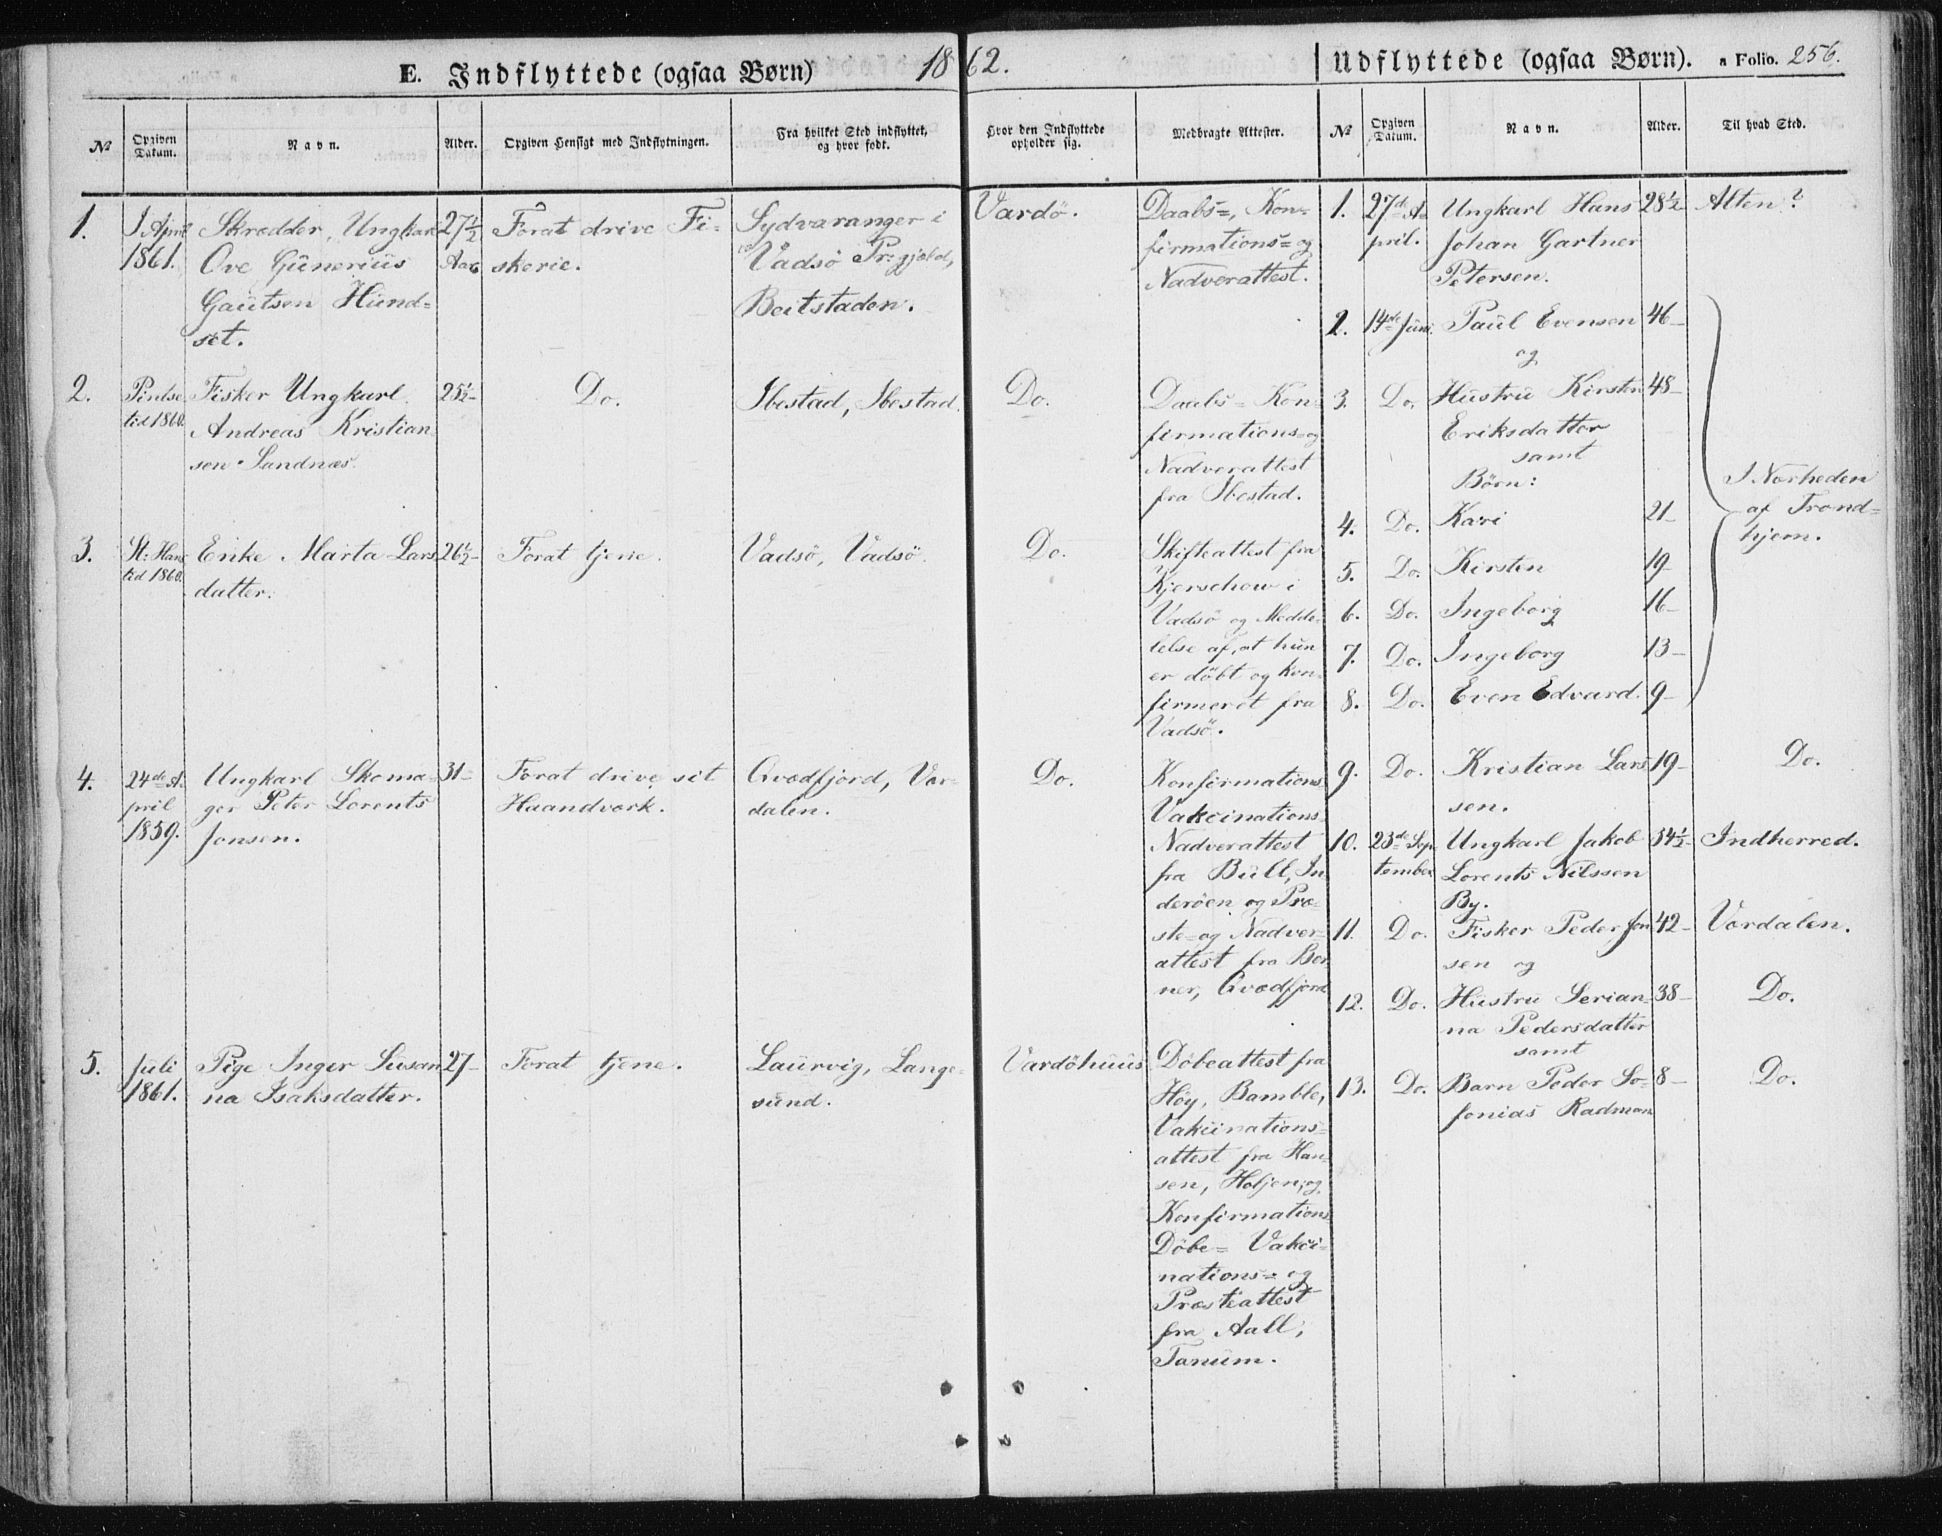 E. Indflyttede (ogsaa Børn) 1862. Udflyttede (ogsaa Børn). a Folio. 256.
No
Opgiven Datum.
Navn.
Alder.
Opgiven Hensigt med Indflytningen.
Fra hvilket Sted indflyttet,
og hvor født.
Hvor den Indflyttede
opholder sig.
Medbragte Attester.
1.
I April
1861.
Skrædder, Ungkarl
Ove Gunerius
Gautsen Hund-
set.
27½
Aar
Forat drive Fi-
skerie.
Sydvaranger i
Vadsö Prgjæld,
Beitstaden.
Vardö.
Daabs-, Kon-
firmations- og
Nadverattest.
2.
Pintse
tid 1860.
Fisker Ungkarl
Andreas Kristian
sen Sandnæs.
25½-
Do.
Ibestad, Ibestad.
Do.
Daabs- Kon-
firmations- og
Nadverattest
fra Ibestad.
3.
St: Hans
tid 1860.
Enke Marta Lars
datter.
26½-
Forat tjene.
Vadsö, Vadsö.
Do.
Skifteattest fra
Kjerschow i
Vadsö og Medde-
lelse af, at hun
er döbt og kon-
firmeret fra
Vadsö.
4.
24de A-
pril
1859.
Ungkarl Skoma-
ger Peter Lorents
Jonsen.
31-
Forat drive sit
Haandværk.
Qvædfjord, Vær-
dalen.
Do.
Konfirmations
Vakcinations-
Nadverattest
fra Bull, In
deröen og Præ-
ste- og Nadver-
attest fra Ber
ner, Qvædfjord
5.
Juli
1861.
Pige Inger Susan
na Isaksdatter.
27-
Forat tjene.
Laurvig, Lange-
sund.
Vardöhuus
Döbeattest fra
Höy, Bamble,
Vakcinations-
attest fra Han-
sen, og
Konfirmations
Döbe- Vakci-
nations- og
Præsteattest
fra Aall,
Tanum.
No
Opgiven Datum.
Navn.
Alder.
Til hvad Sted.
1.
27de A-
pril.
Ungkarl Hans
Johan Gartner
Petersen.
28½
Alten?
2.
14de Juni.
Paul Evensen
og
46-
3.
Do.
Hustru Kirsten
Eriksdatter
samt
Börn:
48-
4. Do. Kari 21-
5. Do. Kirsten 19-
6. Do. Ingeborg 16-
7. Do. Ingeborg 13-
8. Do. Even Edvard. 9-
I Nærheden
af Trond-
hjem.
9. Do. Kristian Lars
sen.
19-
Do.
10.
23de Sep
tember
Ungkarl Jakob
Lorents Nilssen
By.
34½-
Indherred.
11.
Do.
Fisker Peder Jon
sen og
42-
Værdalen.
12.
Do.
Hustru Serian-
na Pedersdatter
samt
38-
Do.
13.
Do.
Barn Peder So-
fonias Radman
8-
Do.